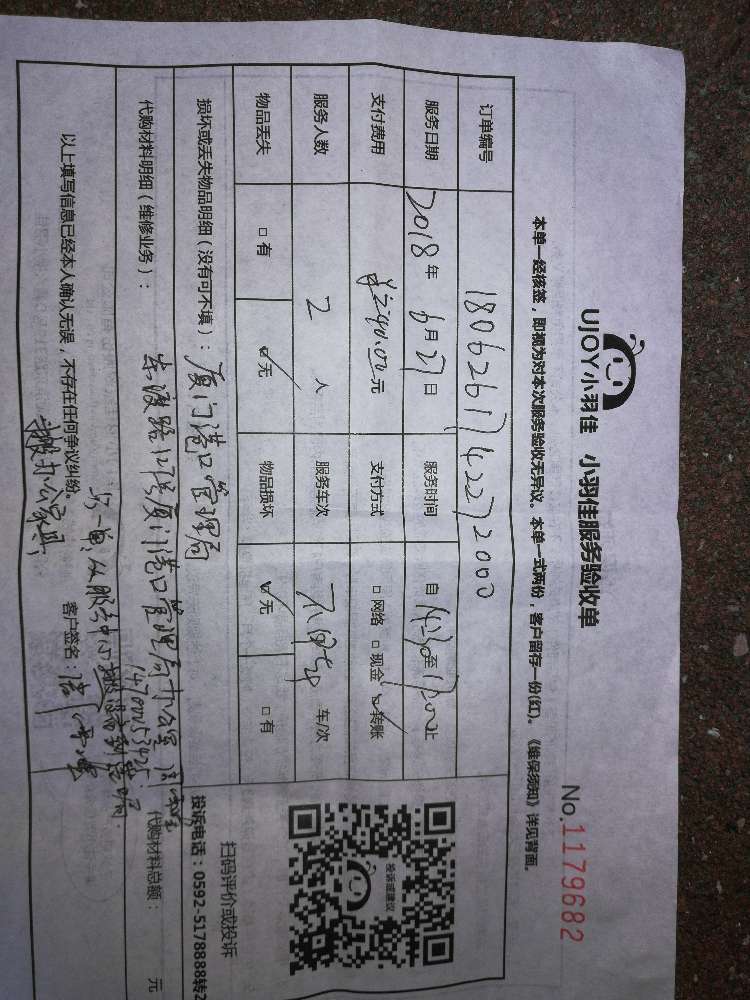 UJOY小羽佳 小羽佳服务验收单
No.1179682
本单一经核签，即视为对本次服务验收无异议。本单一式两份，客户留存一份(红)。《维保须知》详见背面。
订单编号 1806261742272000
服务日期 2018年6月27日 服务时间 自14:30至17:00止
支付费用 ¥240.00元 支付方式 □网络 □现金 ☑转账
服务人数 2人 服务车次 车/次
物品丢失 □有 ☑无 物品损坏 ☑无 □有
投诉或建议
扫码评价或投诉
投诉电话：0592-5178888转2
损坏或丢失物品明细（没有可不填）：厦门港口管理局
代购材料明细（维修业务）：
东渡路 厦门港口管理局办公室
代购材料总额： 元
以上填写信息已经本人确认无误，不存在任何争议纠纷。 客户签名：
搬办公家具